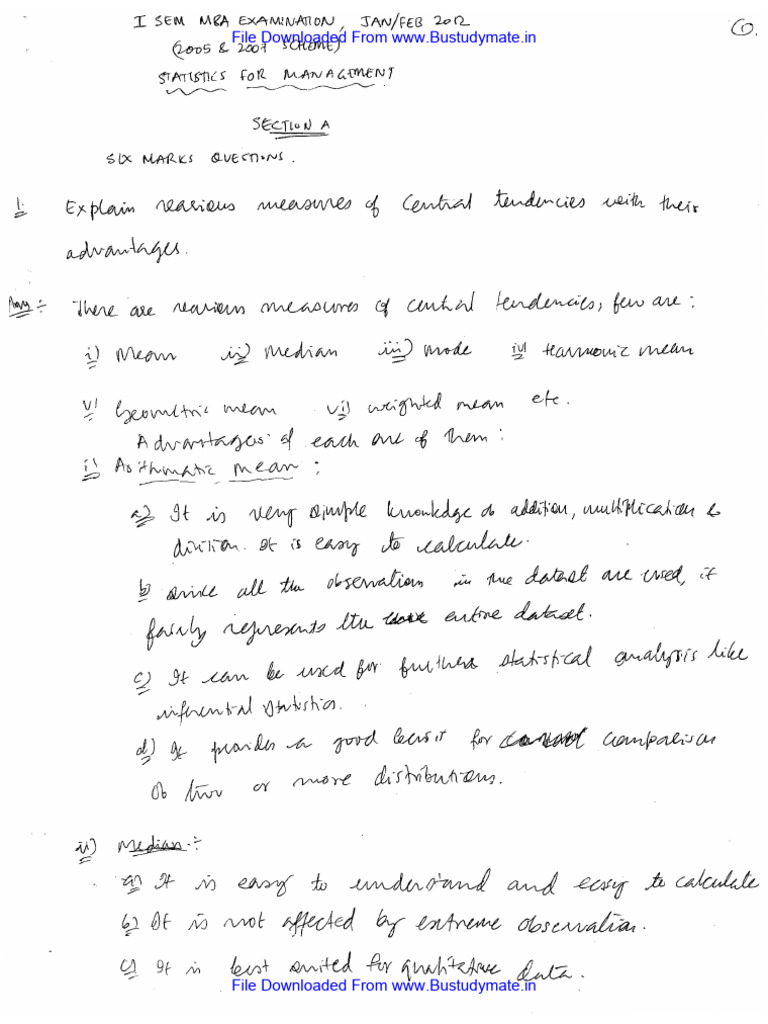 I SEM MBA EXAMINATION, JAN/FEB 2012
①.
File Downloaded From www.Bustudymate.in
(2005 & 2007 SCHEME)
STATISTICS FOR MANAGEMENT
SECTION A
SIX MARKS QUESTIONS.
1. Explain various measures of central tendencies with their
advantages.
Ans:- There are various measures of central tendencies, few are:
i) Mean ii) Median iii) mode iv) Harmonic mean
v) Geometric mean vi) weighted mean etc.
Advantages of each one of them:
i) Arithmatic mean:
a) It is very simple knowledge of addition, multiplication &
division. It is easy to calculate.
b) since all the observations in the dataset are used, it
fairly represents the entire dataset.
c) It can be used for further statistical analysis like
inferential statistics.
d) It provides a good basis for comparison
of two or more distributions.
ii) Median:-
a) It is easy to understand and easy to calculate
b) It is not affected by extreme observation.
c) It is best suited for qualitative data.
File Downloaded From www.Bustudymate.in